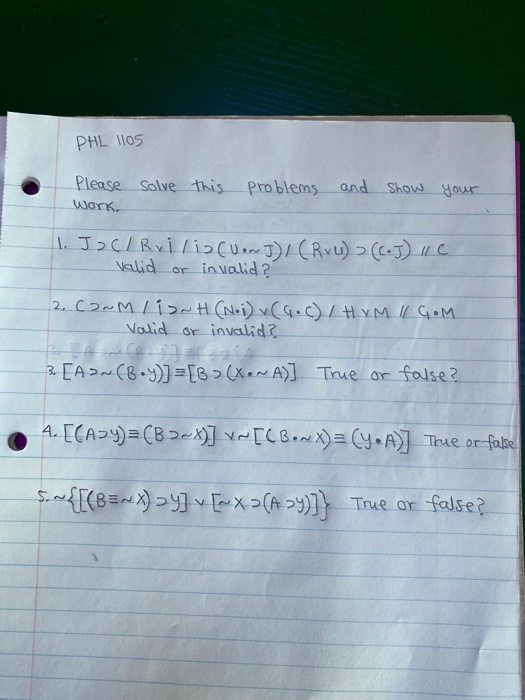 PHL 1105
Please solve this problems and show your
work.
1. J⊃C / R∨i / i⊃(U•~J) / (R∨U)⊃(C•J) // C
Valid or invalid?
2. C⊃~M / i⊃~H (N•i)∨(G•C) / H∨M // G•M
Valid or invalid?
3. [A⊃~(B•y)]≡[B⊃(X•~A)] True or false?
4. [(A⊃y)≡(B⊃~X)] ∨~[(B•~X)≡(y•A)] True or false
5. ~{[(B≡~X)⊃y]∨[~X⊃(A⊃y)]} True or false?